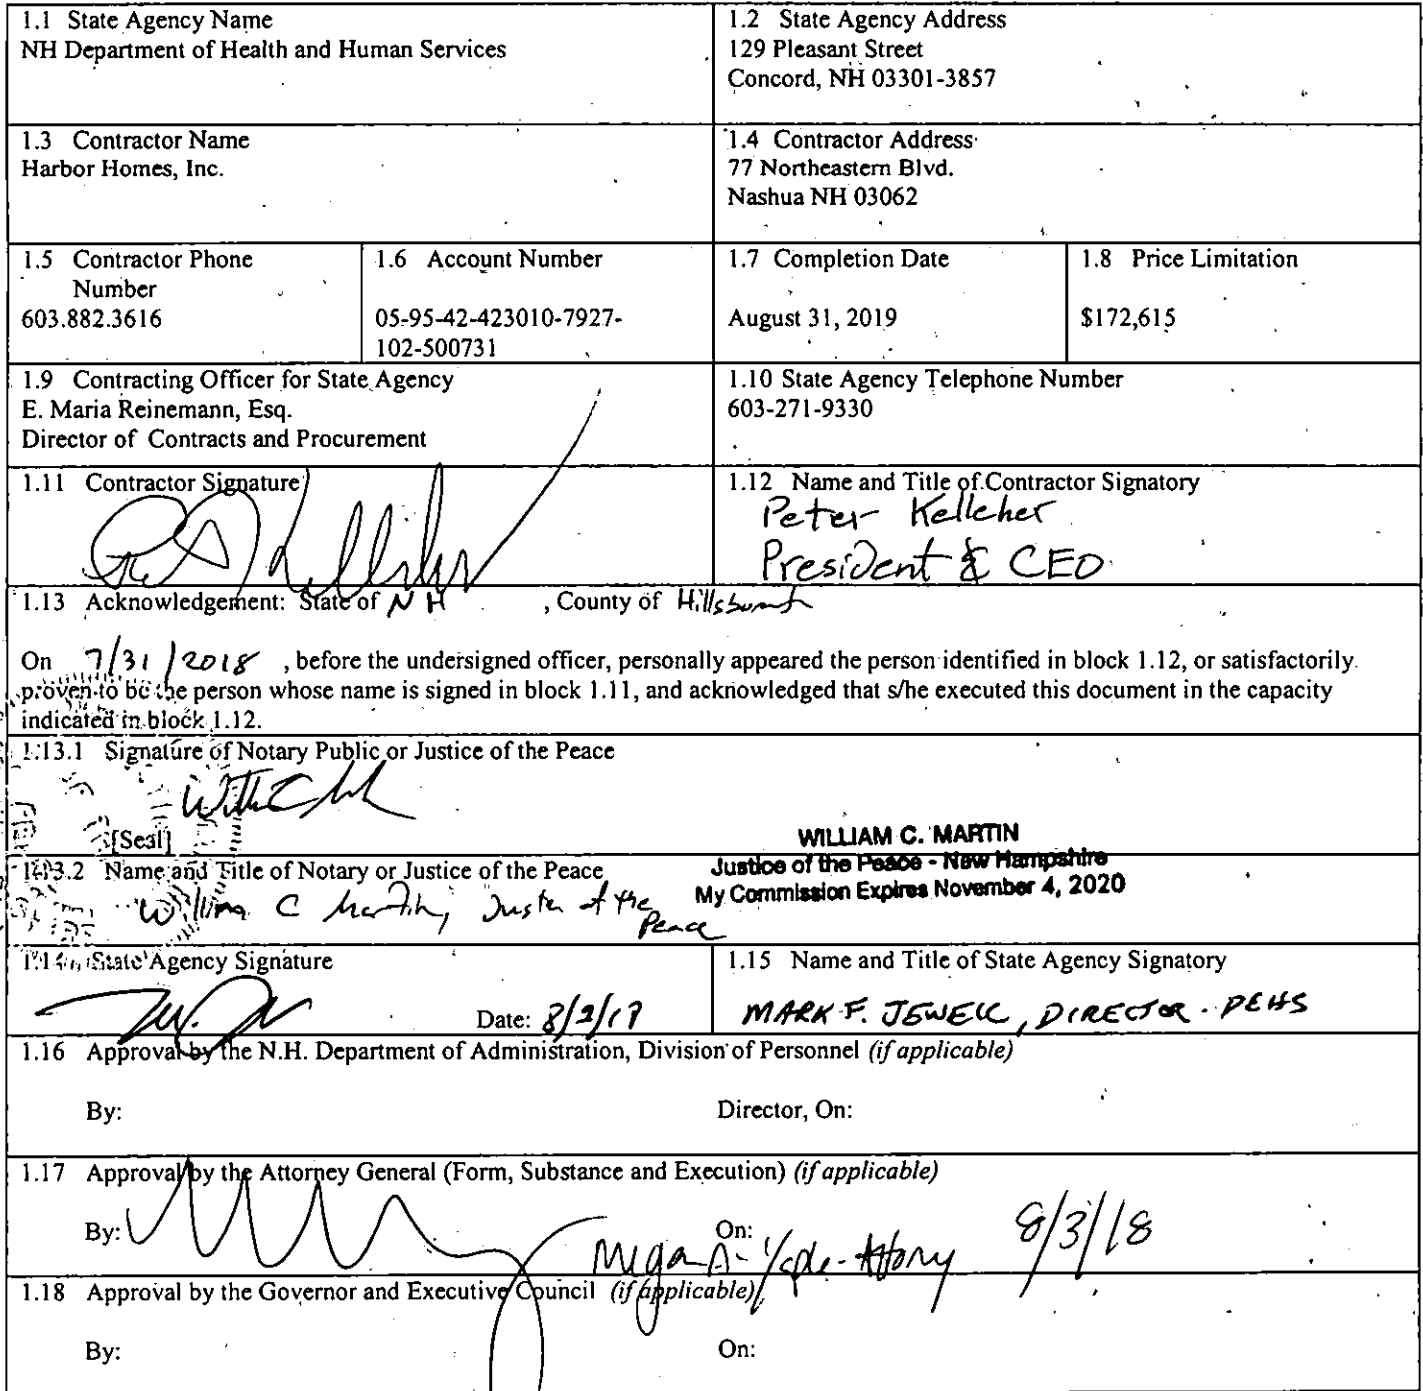 1.1 State Agency Name
NH Department of Health and Human Services
1.2 State Agency Address
129 Pleasant Street
Concord, NH 03301-3857
1.3 Contractor Name
Harbor Homes, Inc.
1.4 Contractor Address
77 Northeastern Blvd.
Nashua NH 03062
1.5 Contractor Phone
Number
603.882.3616
1.6 Account Number
05-95-42-423010-7927-
102-500731
1.7 Completion Date
August 31, 2019
1.8 Price Limitation
$172,615
1.9 Contracting Officer for State Agency
E. Maria Reinemann, Esq.
Director of Contracts and Procurement
1.10 State Agency Telephone Number
603-271-9330
1.11 Contractor Signature
1.12 Name and Title of Contractor Signatory
Peter Kelleher
President & CEO
1.13 Acknowledgement: State of NH , County of
On 7/31/2018 , before the undersigned officer, personally appeared the person identified in block 1.12, or satisfactorily
proven to be the person whose name is signed in block 1.11, and acknowledged that s/he executed this document in the capacity
indicated in block 1.12.
1.13.1 Signature of Notary Public or Justice of the Peace
[Seal]
WILLIAM C. MARTIN
Justice of the Peace - New Hampshire
My Commission Expires November 4, 2020
1.13.2 Name and Title of Notary or Justice of the Peace
William C Martin, Justice of the
Peace
1.14 State Agency Signature
Date:
1.15 Name and Title of State Agency Signatory
MARK F. JEWELL, DIRECTOR
1.16 Approval by the N.H. Department of Administration, Division of Personnel (if applicable)
By: Director, On:
1.17 Approval by the Attorney General (Form, Substance and Execution) (if applicable)
By: On: 8/3/18
1.18 Approval by the Governor and Executive Council (if applicable)
By: On: